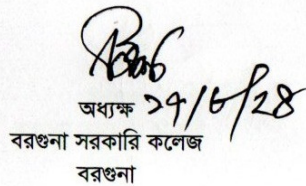 অধ্যক্ষ ২৭/৮/২৪
বরগুনা সরকারি কলেজ
বরগুনা